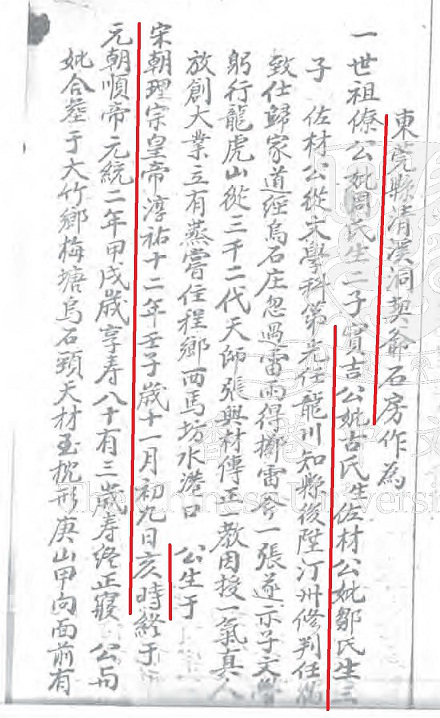 東莞縣清溪洞契爺石房作為
一世祖僚公妣周氏生二子實吉公妣古氏生佐材公妣鄒氏生三
子 佐材公從文學科第先任龍川知縣後陞汀州修判任滿
致仕歸家道經烏石庄忽過雷雨得擲雷令一張遂示子文
躬行龍虎山從三千二代天師張興材傳正教因授一氣真人
放創大業立有蒸嘗住程鄉西馬坊水濂口 公生于
宋朝理宗皇帝淳祐十二年壬子歲十一月初九日亥時終于
元朝順帝元統二年甲戌歲享寿八十有三歲寿终正寢 公与
妣合塟于大竹鄉梅塘烏石頸天材玉枕形庚山甲向面前有
The Chinese Universi